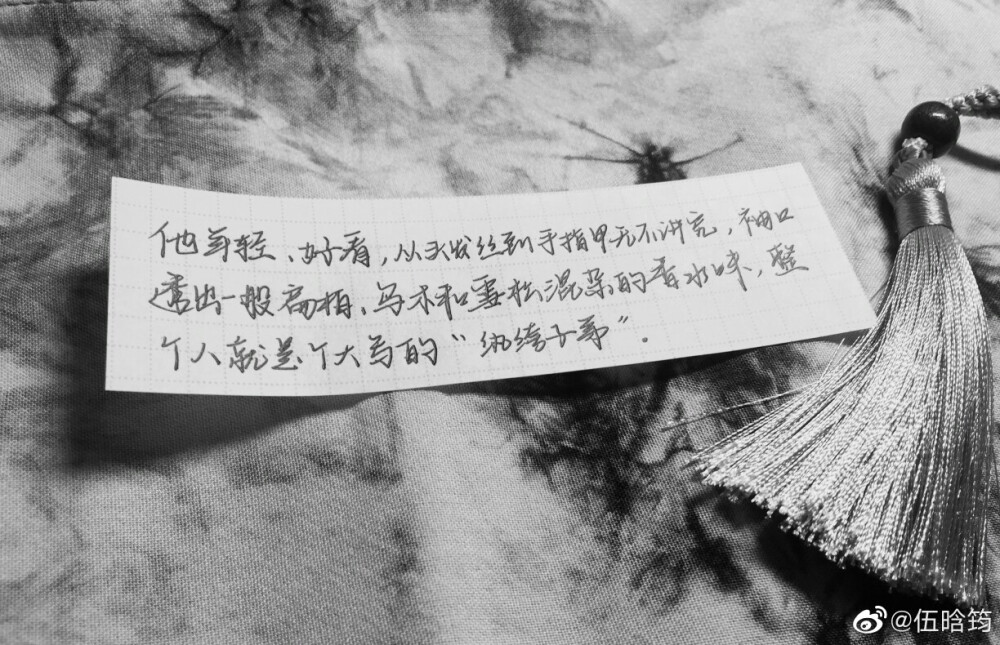 他年轻、好看，从头发丝到手指甲无不讲究，袖口
透出一股扁柏、乌木和雪松混杂的香水味，整
个人就是个大写的“纨绔子弟”。
@伍晗筠